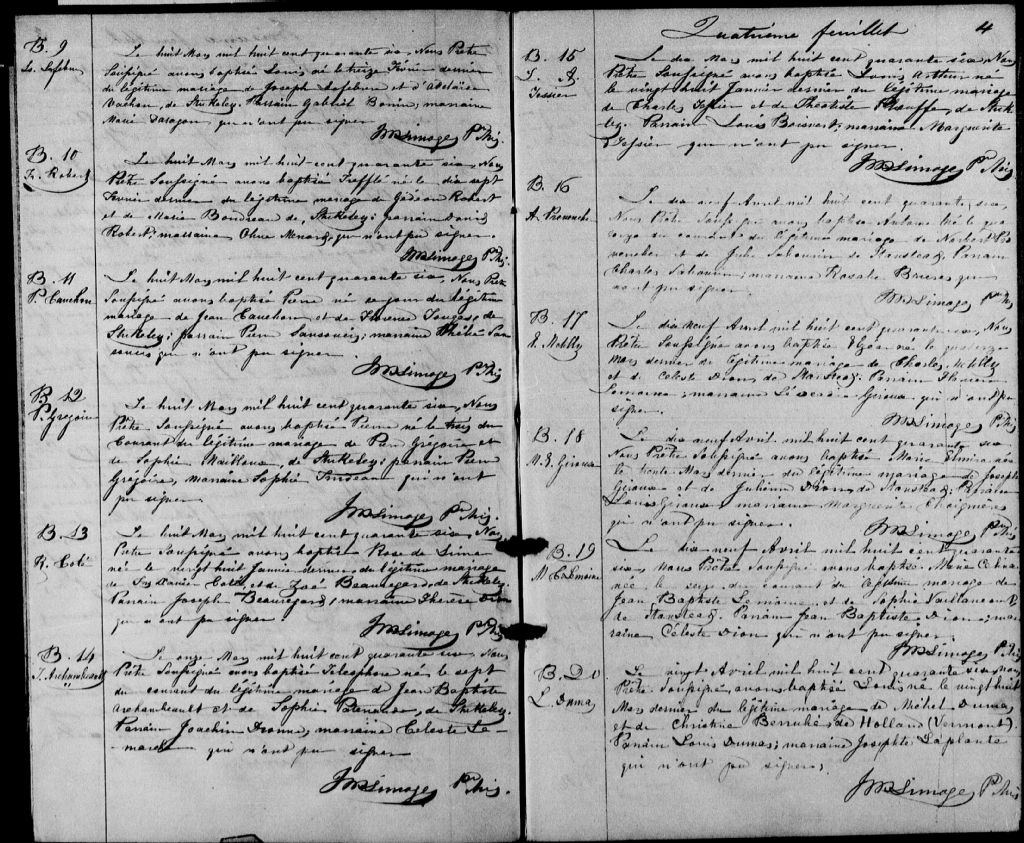 B. 9
Ls. Lefebvre
Le huit Mars mil huit cent quarante six, Nous Prêtre
Soussigné avons baptisé Louis né le treize Février dernier
du légitime mariage de Joseph Lefebvre et d'Adelaïse
Vachon, de Stukeley. Parrain Gabriel Bonin, marraine
Marie qui n'ont pu signer
JMBLimoge Ptre Mis.
B. 10
T. Robert
Le huit Mars mil huit cent quarante six, Nous
Prêtre Soussigné avons baptisé Trefflé né le dix sept
Février dernier du légitime mariage de Gédéon Robert
et de Marie de Stukeley; parrain David
Robert; marraine qui n'ont pu signer.
JMBLimoge Ptre Mis.
B. 11
P. Cauchon
Le huit Mars mil huit cent quarante six, Nous Prêtre
Soussigné avons baptisé Pierre né ce jour du légitime
mariage de Jean Cauchon et de de
Stukeley; parrain Pierre Sansoucis; marraine San-
soucis qui n'ont pu signer.
JMBLimoge Ptre Mis
B 12
P. Grégoire
Le huit Mars mil huit cent quarante six, Nous
Prêtre Soussigné avons baptisé Pierre né le trois du
Courant du légitime mariage de Pierre Grégoire et
de Sophie Mailloux, de Stukeley; parrain Pierre
Grégoire, maraine Sophie Trudeau qui n'ont
pu signer
JMBLimoge Ptre Mis.
B. 13
R. Coté
Le huit Mars mil huit cent quarante six, Nous
Prêtre Soussigné avons baptisé Rose de Lima
né le vingt huit Janvier dernier du légitime mariage
de Coté et de Zoé Beauregard de Stukeley.
Parrain Joseph Beauregard; marraine Therèse Dion
qui n'ont pu signer
JMBLimoge Ptre Mis
B. 14
T. Archambeault
Le onze Mars mil huit cent quarante six Nous
Prêtre Soussigné avons baptisé Telesphore né le sept
du courant du légitime mariage de Jean Baptiste
Archambeault et de Sophie Patenaude de Stukeley.
Parrain Joachim Dionne, maraine Celeste Le-
qui n'ont pu signer
JMBLimoge Ptre Mis.
Quatrième feuillet 4
B. 15
L. A.
Tessier
Le dix Mars mil huit cent quarante six Nous
Prêtre Soussigné avons baptisé Louis Arthur né
le vingt huit Janvier dernier du légitime mariage
de Charles Tessier et de Théotiste Plouffe de Stuke-
ley. Parrain Louis Boisvert; marraine Marguerite
Tessier qui n'ont pu signer.
JMBLimoge Ptre Mis
B. 16
A. Provencher
Le dix neuf Avril mil huit cent quarante six,
Nous Prêtre Soussigné avons baptisé Antoine né le
du courant du légitime mariage de Norbert Pro-
vencher et de Julie Sabourin de Stanstead, Parrain
Charles Sabourin; marraine Rosalie qui
n'ont pu signer.
JMBLimoge Ptre Mis
B. 17
Le dix neuf Avril mil huit cent quarante six, Nous
Prêtre Soussigné avons baptisé né le quatorze
Mars dernier du légitime mariage de Charles
et de Celeste Dion de Stanstead; Parrain
Lemoine; marraine Giroux qui n'ont pu
signer.
JMBLimoge Ptre Mis
B. 18
M. E. Giroux
Le dix neuf Avril mil huit cent quarante six
Nous Prêtre Soussigné avons baptisé Marie Elmire née
le trente Mars dernier du légitime mariage de Joseph
Giroux et de Julienne Dion de Stanstead; Parrain
Louis Giroux; maraine Marguerite
qui n'ont pu signer.
JMBLimoge Ptre Mis
B. 19
M. C. Lemoine
Le dix neuf Avril mil huit cent quarante
six Nous Prêtre Soussigné avons baptisé Marie
née le seize du courant du légitime mariage de
Jean Baptiste Lemoine et de Sophie
de Stanstead. Parrain Jean Baptiste Dion; mar-
raine Céleste Dion qui n'ont pu signer.
JMBLimoge Ptre Mis
B. 20
L. Dumas
Le vingt Avril mil huit cent quarante six Nous
Prêtre Soussigné avons baptisé Louis né le vingt huit
Mars dernier du légitime mariage de Michel Dumas
et de Christine de Holland (Vermont).
Parrain Louis Dumas; marraine Josephte Laplante
qui n'ont pu signer.
JMBLimoge Ptre Mis